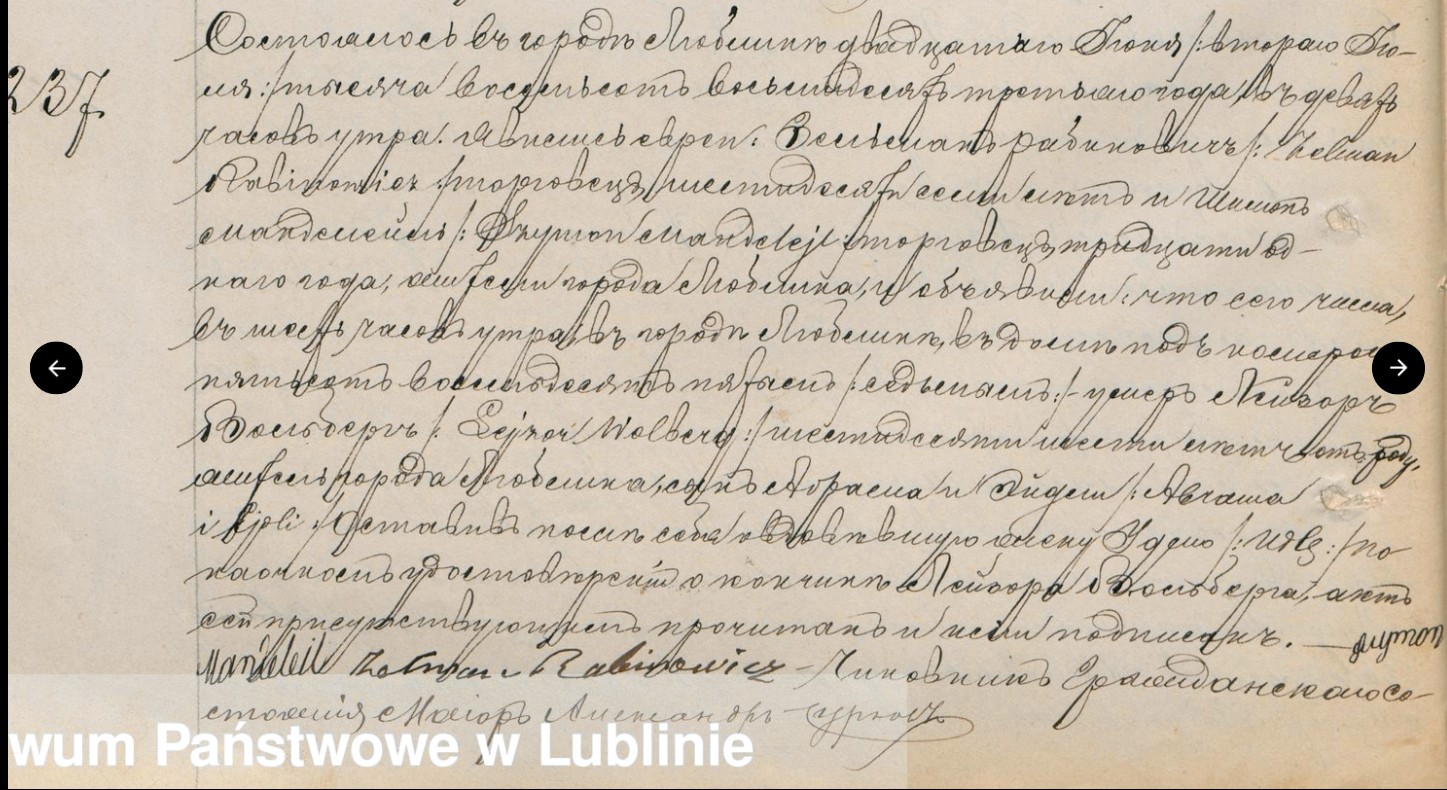 Состоялось въ городѣ Люблинѣ двадцатаго Іюня /:втораго Ію-
237
ля:/ тысяча восемьсотъ восемьдесятъ третьяго года, въ девять
часовъ утра. Явились евреи: Зельманъ Рабиновичъ /: Zelman
Rabinowicz :/ торговецъ, шестидесяти семи лѣтъ и Шимонъ
Мандельейль /: Szymon Mandelejl :/ торговецъ, тридцати од-
наго года, жители города Люблина, и объявили: что сего числа,
въ шесть часовъ утра, въ городѣ Люблинѣ, въ домѣ подъ номеромъ
пятьсотъ восемьдесятъ пятымъ /:седьмымъ:/ - умеръ Лейзоръ
Вольбергъ /: Lejzor Wolberg :/ шестидесяти шести лѣтъ отъ роду,
житель города Люблина, сынъ Абрама и Эйдли /: Abrama
i Ejdli :/ Оставивъ послѣ себя овдовѣвшую жену Удлю /: Udlę :/ По
наочномъ удостовѣреніи о кончинѣ Лейзора Вольберга, актъ
сей присутствующимъ прочитанъ и ими подписанъ. — Szymon
Mandeleil Zelman Rabinowicz - Чиновникъ Гражданскаго Со-
стоянія Маіоръ Александръ
wum Państwowe w Lublinie